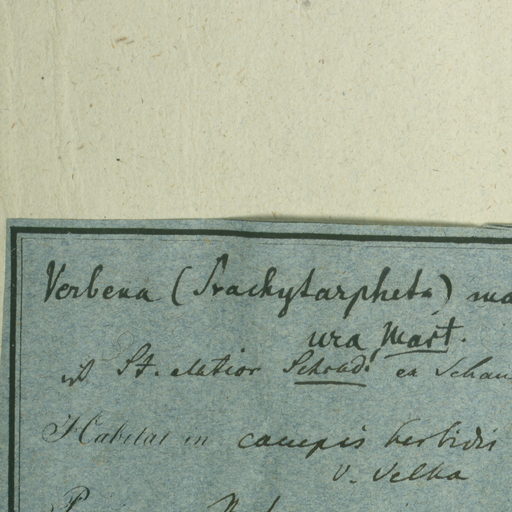 Verbena (Stachytarpheta) ma
ura Mart.
St. elatior Schrad. ex Schau
Habitat in campis herbidis
v. Velha